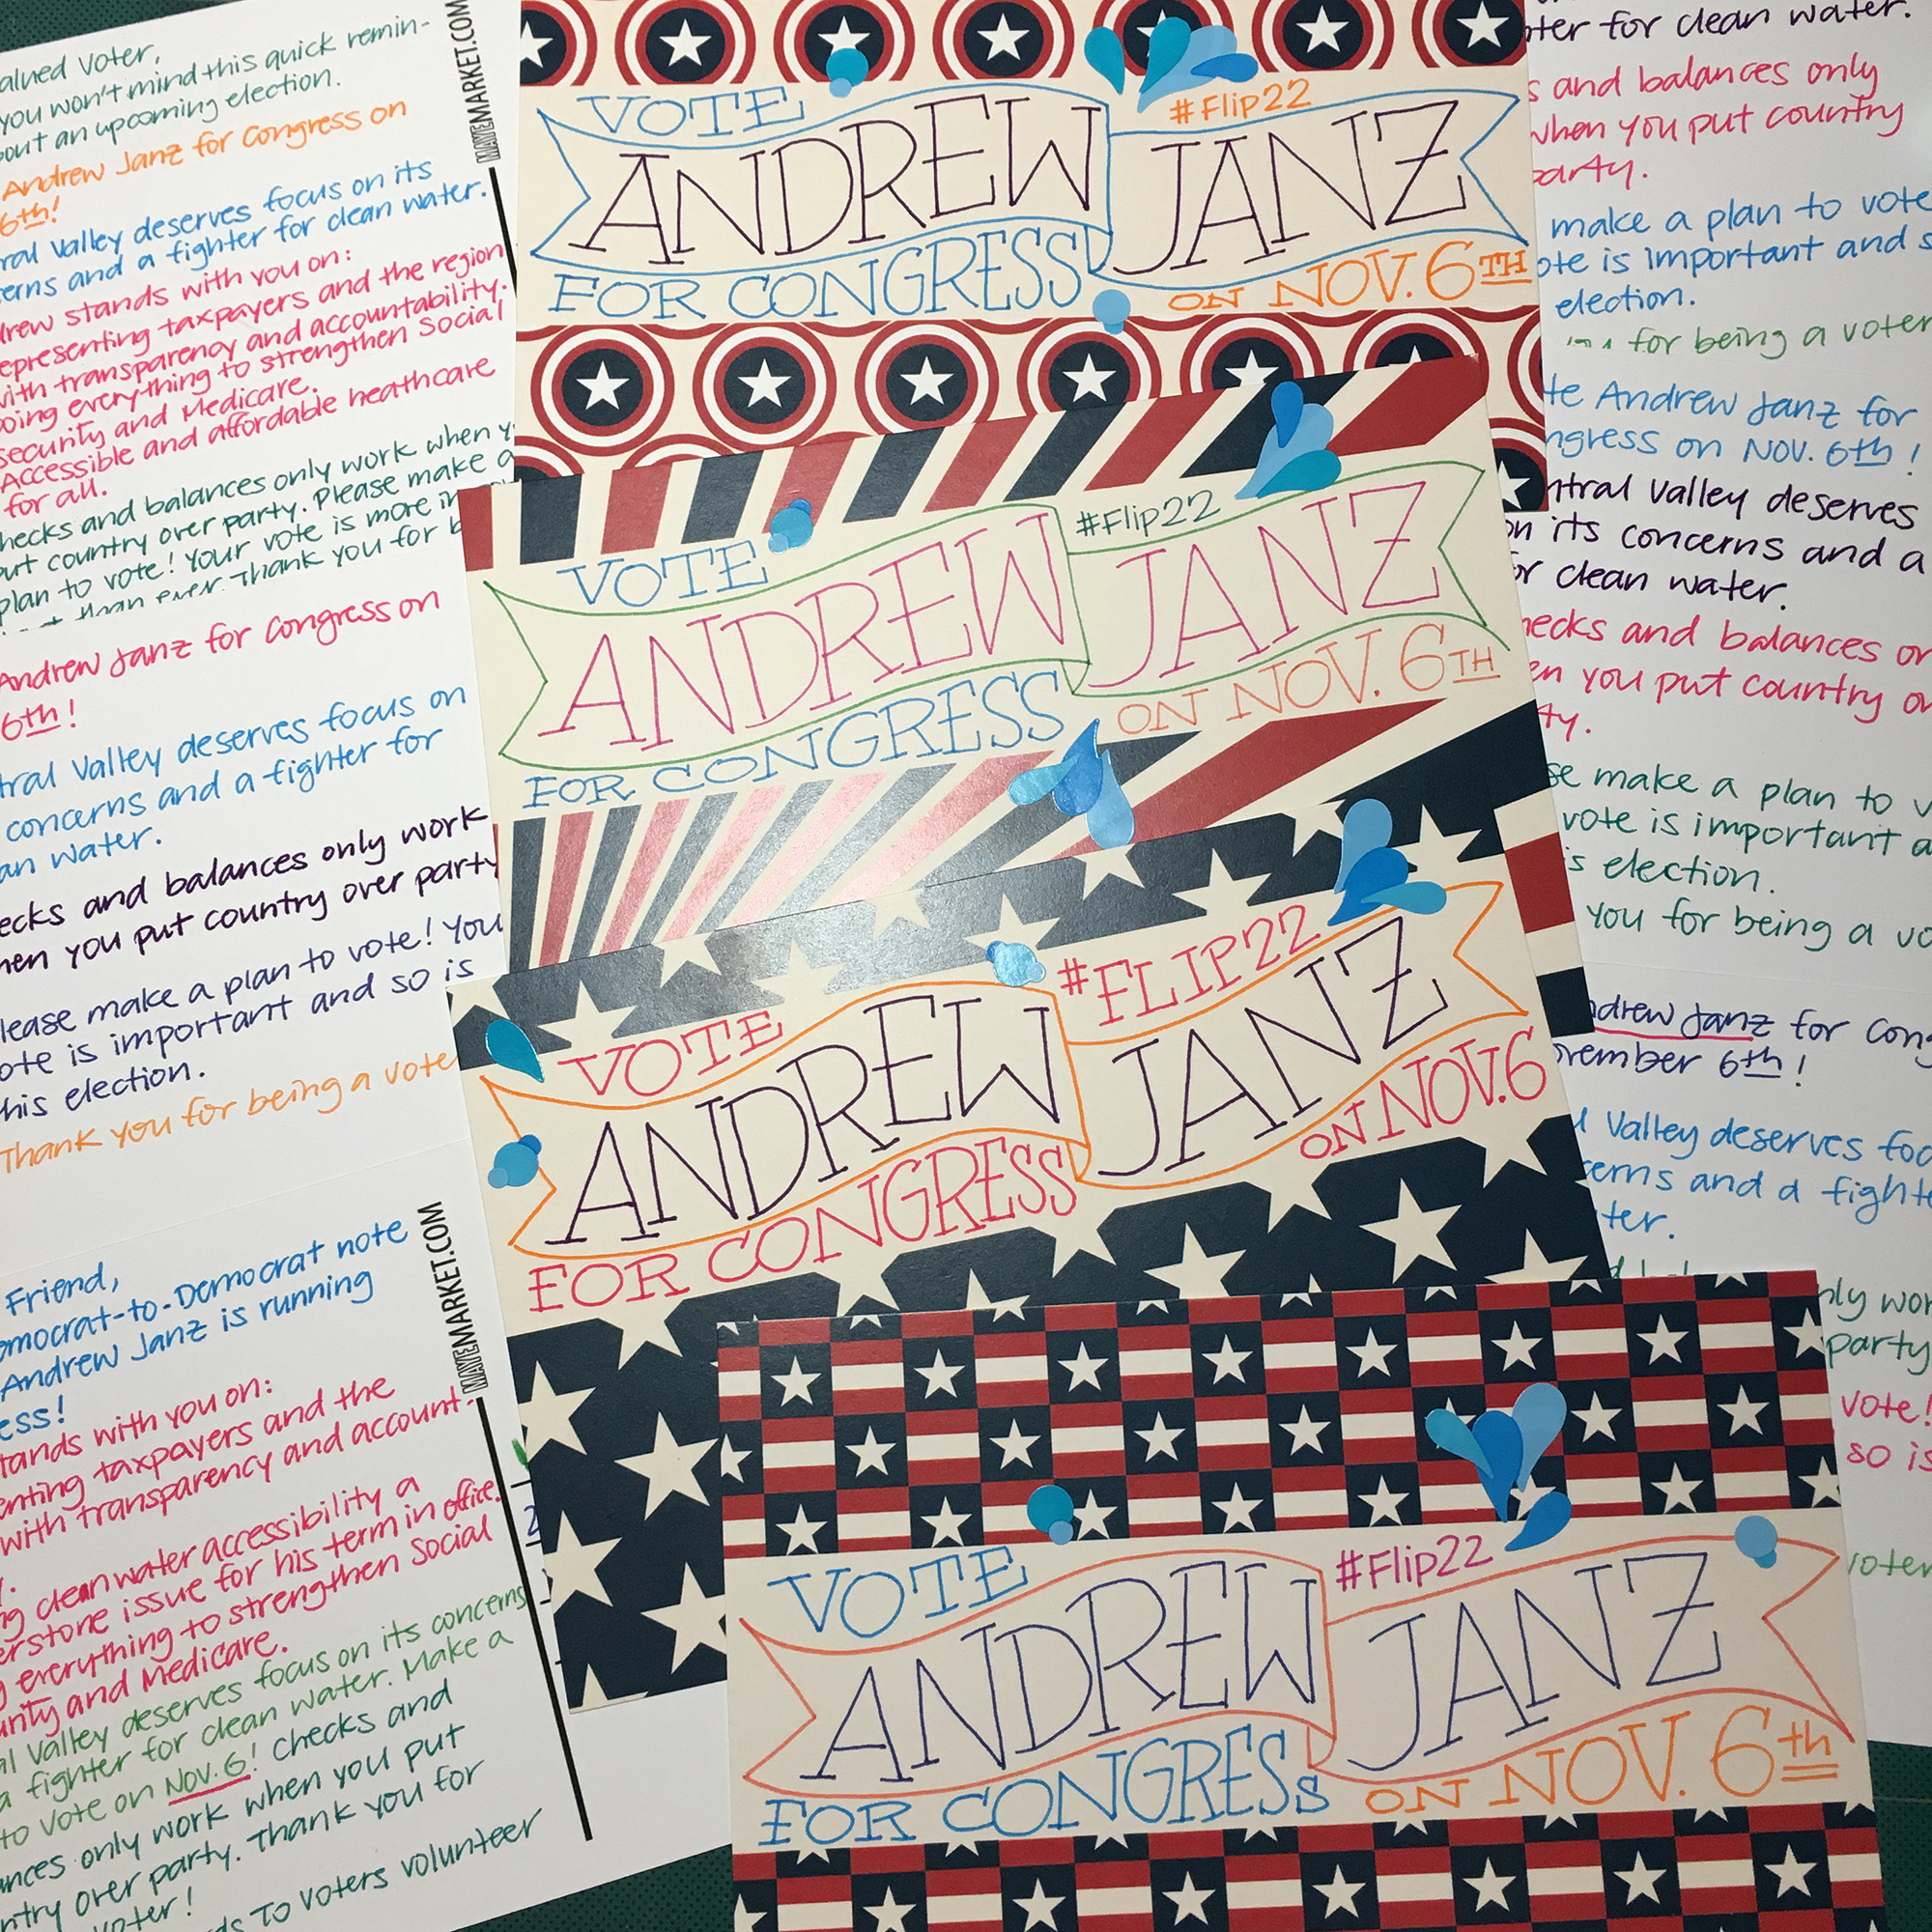 alued voter,
you won't mind this quick remin-
out an upcoming election.
Andrew Janz for Congress on
6th!
ral Valley deserves focus on its
erns and a fighter for clean water.
rew stands with you on:
epresenting taxpayers and the region
with transparency and accountability.
oing everything to strengthen Social
security and Medicare.
Accessible and affordable heathcare
for all.
hecks and balances only work when y
put country over party. Please make a
plan to vote! Your vote is more im
than ever. Thank you for b
MAYEMARKET.COM
Andrew Janz for Congress on
6th!
tral Valley deserves focus on
concerns and a fighter for
an water.
ecks and balances only work
hen you put country over party
lease make a plan to vote! You
ote is important and so is
his election.
Thank you for being a vote
Friend,
emocrat-to-Democrat note
Andrew Janz is running
ess!
tands with you on:
enting taxpayers and the
with transparency and account-
y.
ng clean water accessibility a
erstone issue for his term in office.
g everything to strengthen Social
urity and Medicare.
al Valley deserves focus on its concerns
a fighter for clean water. Make a
to vote on Nov. 6! Checks and
ances only work when you put
ntry over party. Thank you for
voter!
ds To Voters volunteer
MAYEMARKET.COM
VOTE
#Flip22
ANDREW JANZ
FOR CONGRESS ON NOV. 6TH
VOTE
#Flip22
ANDREW JANZ
FOR CONGRESS ON NOV. 6TH
VOTE
#FLIP22
ANDREW JANZ
FOR CONGRESS ON NOV. 6
VOTE
#Flip22
ANDREW JANZ
FOR CONGRESS ON NOV. 6th
ter for clean water.
s and balances only
when you put country
party.
make a plan to vote
ote is important and s
election.
for being a voter
te Andrew Janz for
ngress on Nov. 6th!
ntral Valley deserves
on its concerns and a
or clean water.
hecks and balances on
en you put country ov
ty.
se make a plan to v
vote is important a
s election.
you for being a vo
ndrew Janz for Cong
vember 6th!
l Valley deserves foc
erns and a fighte
ter.
nly wor
party
vote!
so is
voter